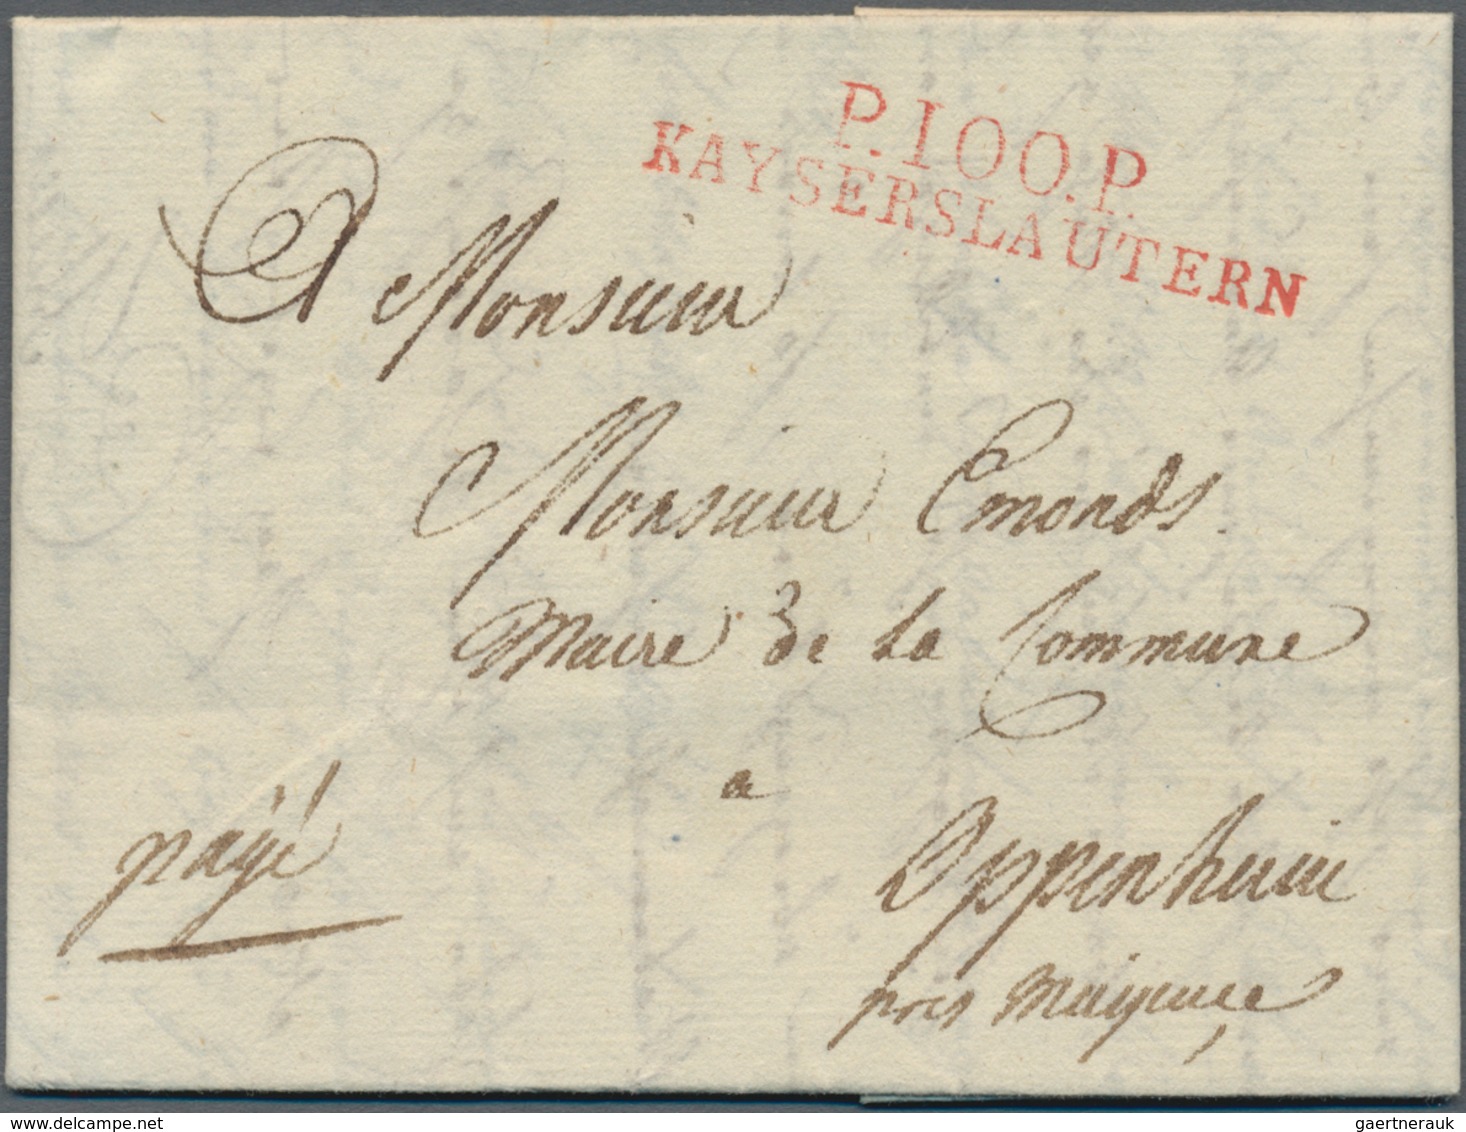 P.100.P.
KAYSERSLAUTERN
A Monsieur
Monsieur Emonds
Maire de la Commune
a
Oppenheim
payé
pres Mayence
gaertnerauk